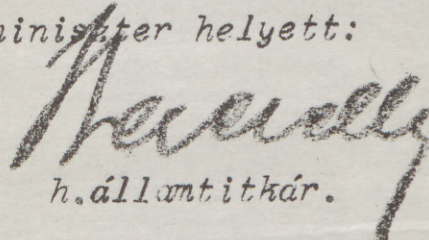 miniszter helyett:
h.államtitkár.